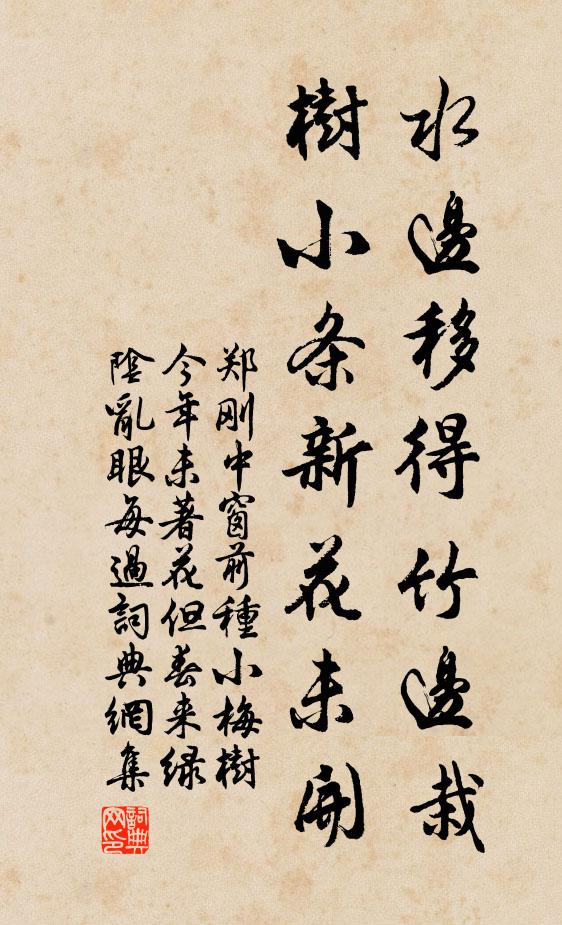 水邊移得竹邊栽
樹小条新花未開
郑刚中窗前種小梅樹
今年未著花但春来绿
陰亂眼每過詞典網集
詞典
网印